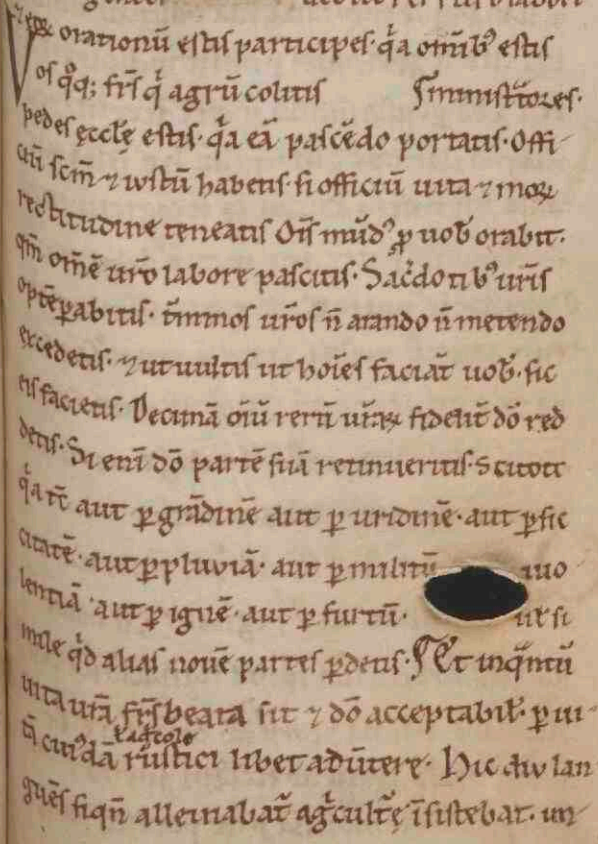 orationū estis participes· q̇a om̄ibꝰ estis
Vos q̊q; fr̄s q̇ agrū colitis ſministr̄ores·
pedes ęcclę̄ estis· q̇a eā pascēdo portatis· Offi
ciū scm̄ ⁊ iustū habetis· si officiū uita ⁊ moꝝ
rectitudine teneatis Oīs mūdꝰ ꝓ uob̄ orabit·
qm̄ om̄ē ur̄o labore pascitis· Sac̄dotibꝰ ur̄is
optēꝑabitis· t̄minos ur̄os n̄ arando n̄ metendo
excedetis· ⁊ ut uultis ut hoīes faciāt uob̄· sic
eis facietis· Decimā oīū rerū ur̄aꝝ fidelit̄ dō red
detis· Si enī dō partē suā retinueritis· Scitote
q̇a t̄r̄ aut ꝑ grādinē aut ꝑ uridinē· aut ꝑ sic
citatē· aut ꝑ pluuiā· aut ꝑ militū uio
lentiā· aut ꝑ ignē· aut ꝑ furtū· si
mile q̇d alias nouē partes ꝑdetis· Et inq̄ntū
uita ur̄a fr̄s beata sit ⁊ dō acceptabil̄· ꝑ ui-
tā cuiꝰdā rustici ł ag̊cole libet adūtere· Hic diu lan
guēs siqn̄ alleuiabat̄ ag̊cultę īsistebat· un-